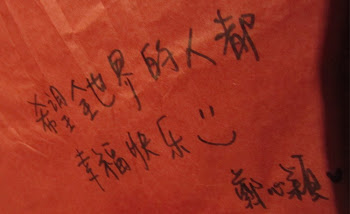 希望全世界的人都
幸福快乐
鄭心穎